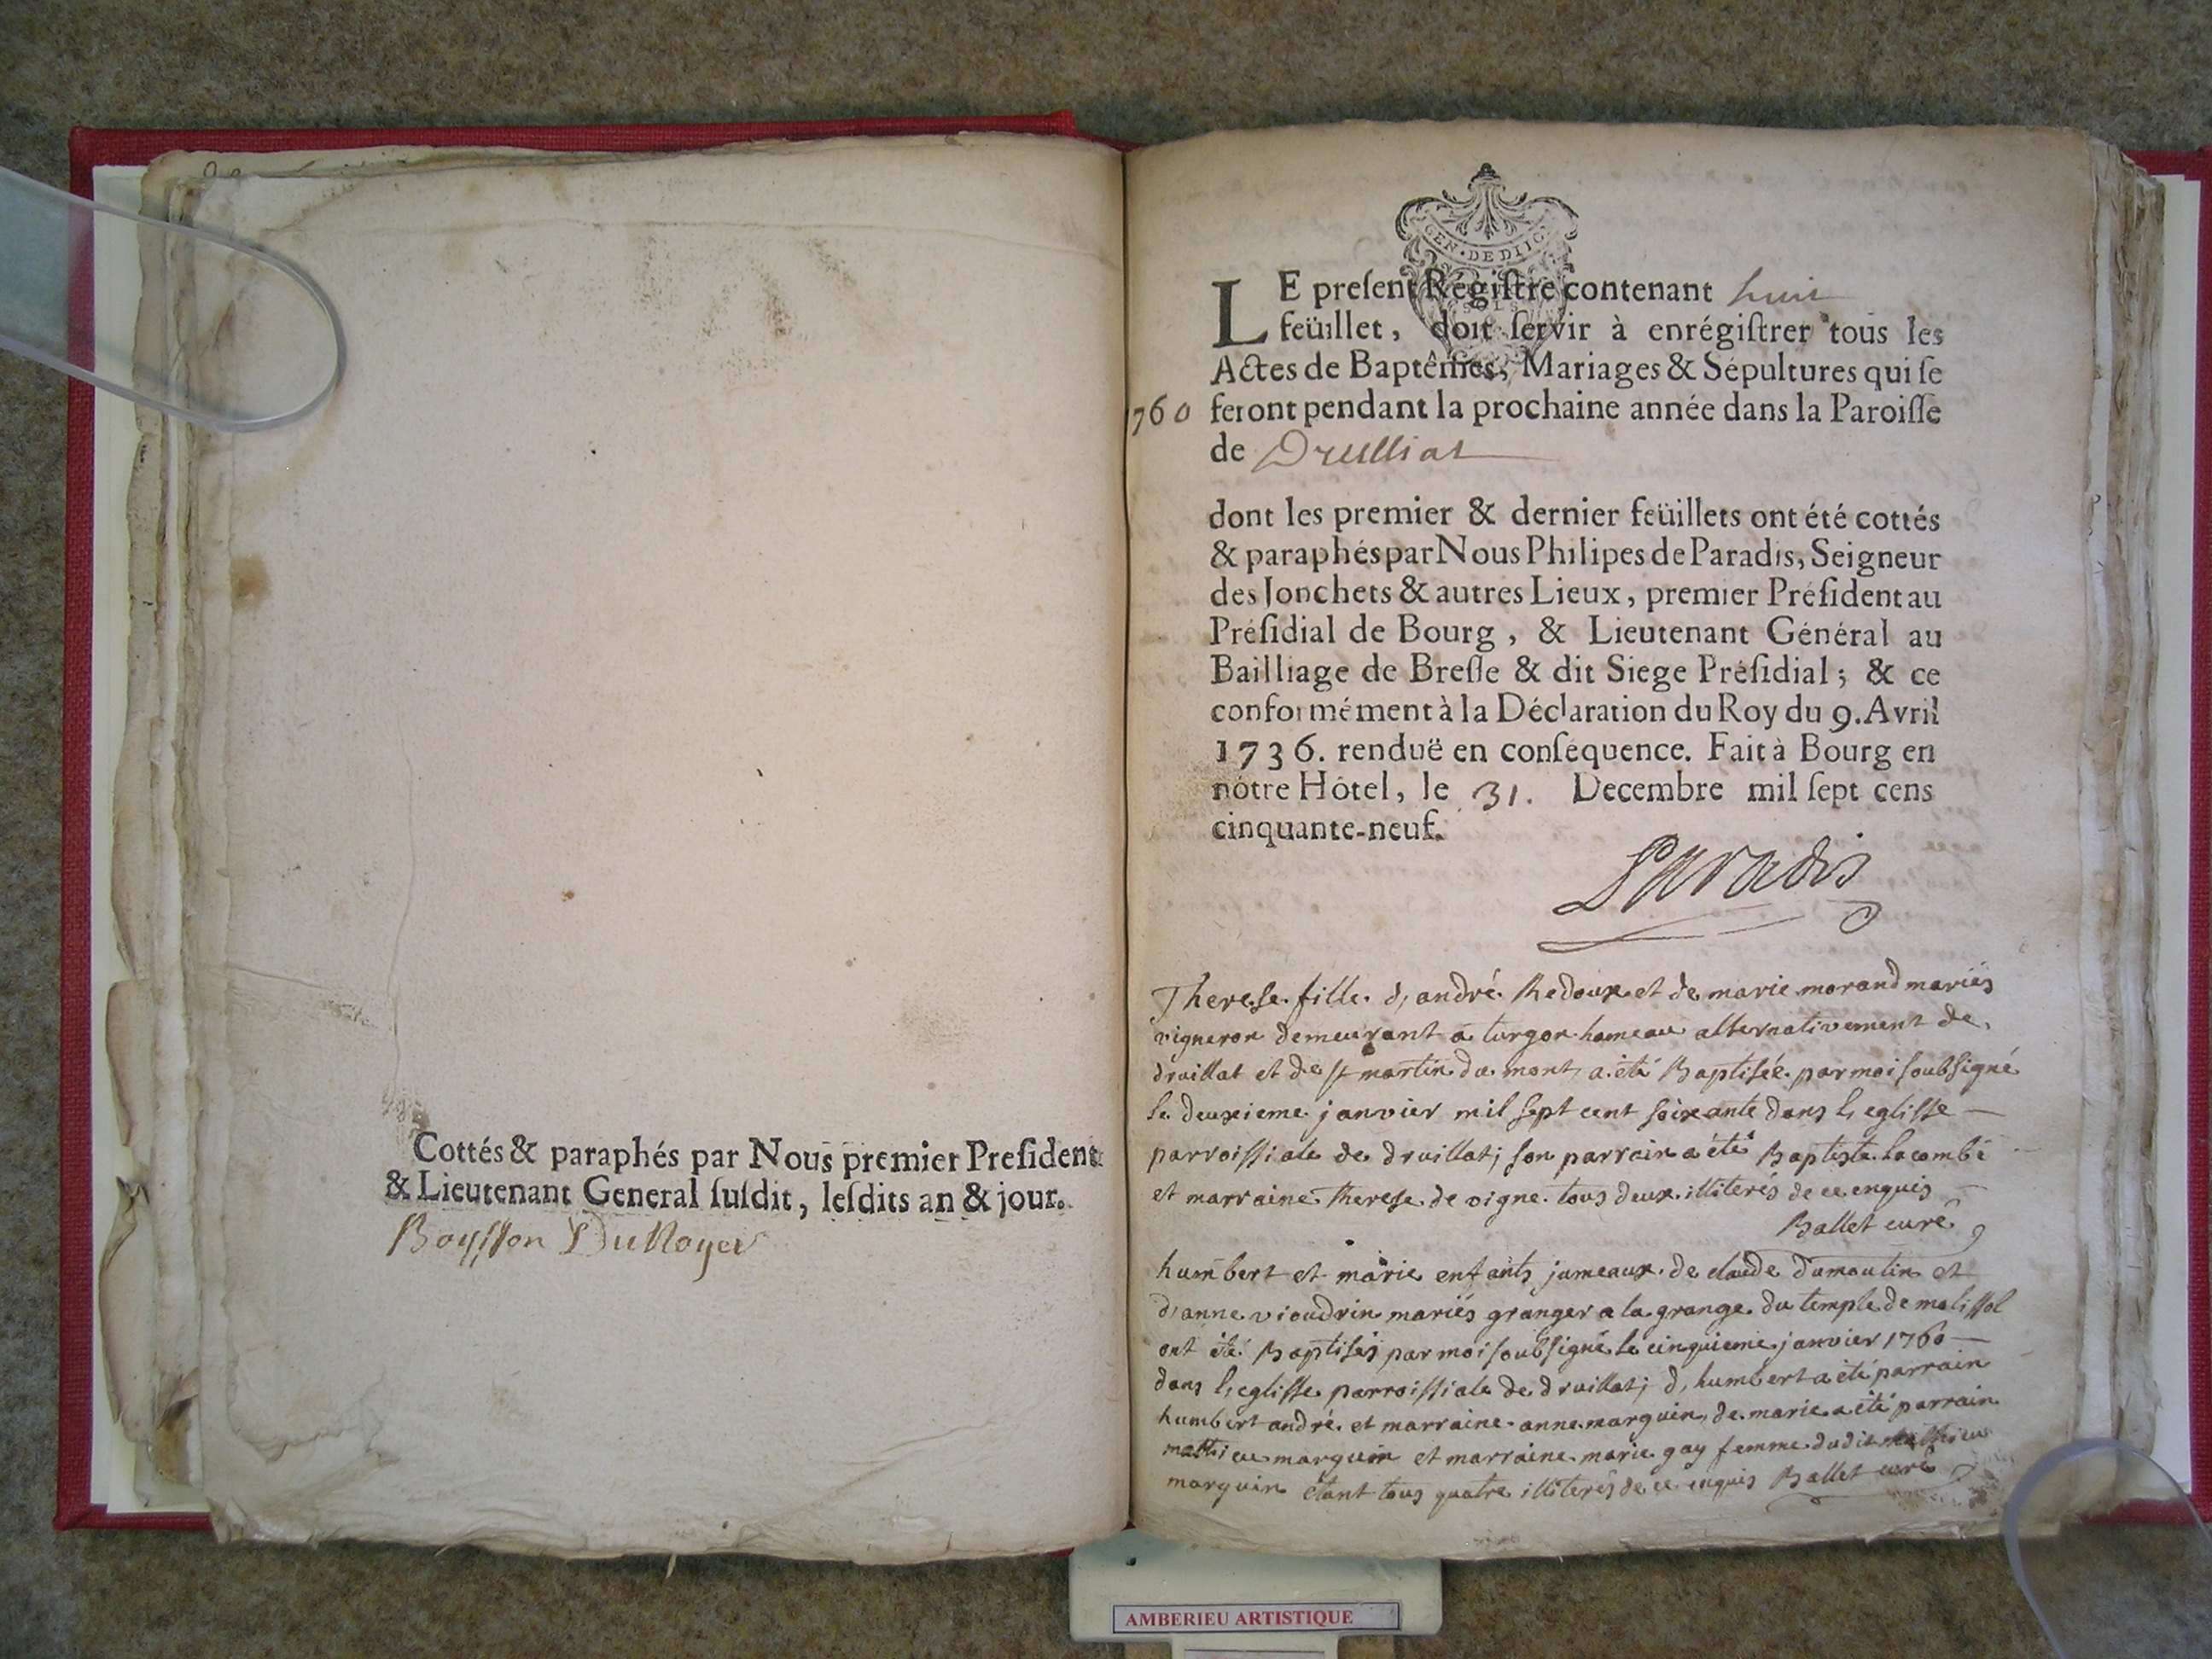 Cottés & paraphés par Nous premier Preſident
& Lieutenant General ſuſdit, leſdits an & jour.
GEN · DE DIJO
LE preſent Régiſtre contenant huit
feüillet, doit ſervir à enrégiſtrer tous les
Actes de Baptêmes, Mariages & Sépultures qui ſe
1760 feront pendant la prochaine année dans la Paroiſſe
de Druilliat
dont les premier & dernier feüillets ont été cottés
& paraphés par Nous Philipes de Paradis, Seigneur
des Jonchets & autres Lieux, premier Préſident au
Préſidial de Bourg, & Lieutenant Général au
Bailliage de Breſſe & dit Siege Préſidial; & ce
conformément à la Déclaration du Roy du 9. Avril
1736. renduë en conſéquence. Fait à Bourg en
nôtre Hôtel, le 31. Decembre mil ſept cens
cinquante-neuf.
Paradis
Therese fille d, andré Redoux et de marie morand mariés
vigneron demeurant a turgon hameau alternativement de
druillat et de st martin du mont a été Baptisée par moi soubsigné
le deuxieme janvier mil sept cent soixante dans l, eglisse
parroissiale de druillat; son parrain a été Baptiste lacombe
et marraine therese de vigne tous deux illiterés de ce enquis
Ballet curé
humbert et marie enfants jumeaux de claude dumoulin et
d, anne vioudrin mariés granger a la grange du temple de molissol
ont été Baptisés par moi soubsigné le cinquieme janvier 1760
dans l, eglisse parroissiale de druillat; d, humbert a été parrain
humbert andré et marraine anne marguin, de marie a été parrain
mathieu marguin et marraine marie gay femme dudit mathieu
marguin étant tous quatre illiterés de ce enquis Ballet curé
AMBERIEU ARTISTIQUE